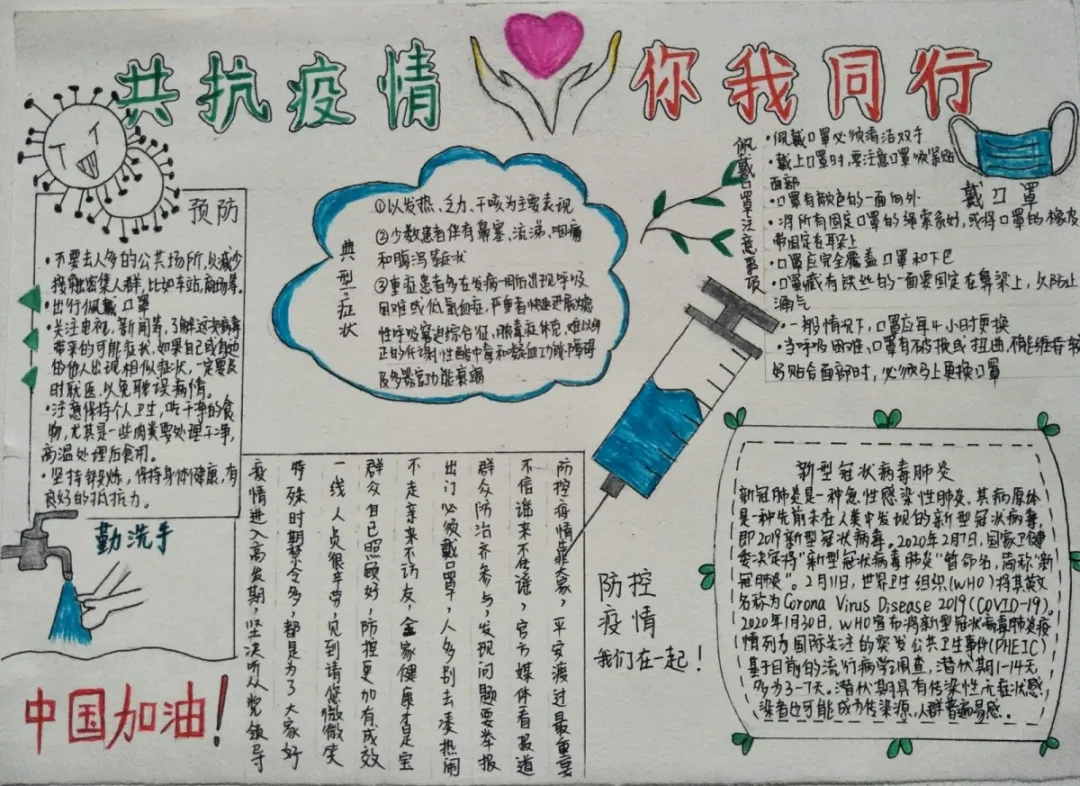 共抗疫情
你我同行
预防
·不要去人多的公共场所,以减少
接触密集人群,比如车站,商场等。
·出行佩戴口罩
·关注电视,新闻等,了解这次病毒
带来的可能症状,如果自己或身边
的他人出现相似症状,一定要及
时就医,以免耽误病情。
·注意保持个人卫生,吃干净的食
物,尤其是一些肉类要处理干净,
高温处理后食用。
·坚持锻炼,保持身体健康,有
良好的抵抗力。
勤洗手
中国加油!
典型症状
①以发热、乏力、干咳为主要表现
②少数患者伴有鼻塞、流涕、咽痛
和腹泻等症状
③重症患者多在发病一周后出现呼吸
困难或低氧血症,严重者快速进展为急
性呼吸窘迫综合征、脓毒症休克、难以纠
正的代谢性酸中毒和凝血功能障碍
及多器官功能衰竭
佩戴口罩注意事项
戴口罩
·佩戴口罩必须清洁双手
·戴上口罩时,要注意口罩项紧贴
面部
·口罩有颜色的一面向外
·将所有固定口罩的绳索系好,或将口罩的橡皮
带固定在耳朵上
·口罩应完全覆盖口罩和下巴
·口罩藏有铁丝的一面要固定在鼻梁上,以防止
漏气
·一般情况下,口罩应每4小时更换
·当呼吸困难,口罩有破损或扭曲,不能维持较
好贴合面部时,必须马上更换口罩
防控疫情靠大家,平安渡过最重要
不信谣来不传谣,官方媒体看报道
群众防治齐参与,发现问题要举报
出门必须戴口罩,人多别去凑热闹
不走亲来不访友,全家健康才是宝
群众自己照顾好,防控更加有成效
一线人员很辛劳,见到请您微微笑
特殊时期禁令多,都是为了大家好
疫情进入高发期,坚决听从党领导
防控
疫情
我们在一起!
新型冠状病毒肺炎
新冠肺炎是一种急性感染性肺炎,其病原体
是一种先前未在人类中发现的新型冠状病毒,
即2019新型冠状病毒。2020年2月7日,国家卫健
委决定将“新型冠状病毒肺炎”暂命名,简称“新
冠肺炎”。2月11日,世界卫生组织(WHO)将其英文
名称为Corona Virus Disease 2019(COVID-19)。
2020年1月30日,WHO宣布将新型冠状病毒肺炎疫
情列为国际关注的突发公共卫生事件(PHEIC)
基于目前的流行病学调查,潜伏期1-14天,
多为3-7天。潜伏期具有传染性,无症状感
染者也可能成为传染源,人群普遍易感。